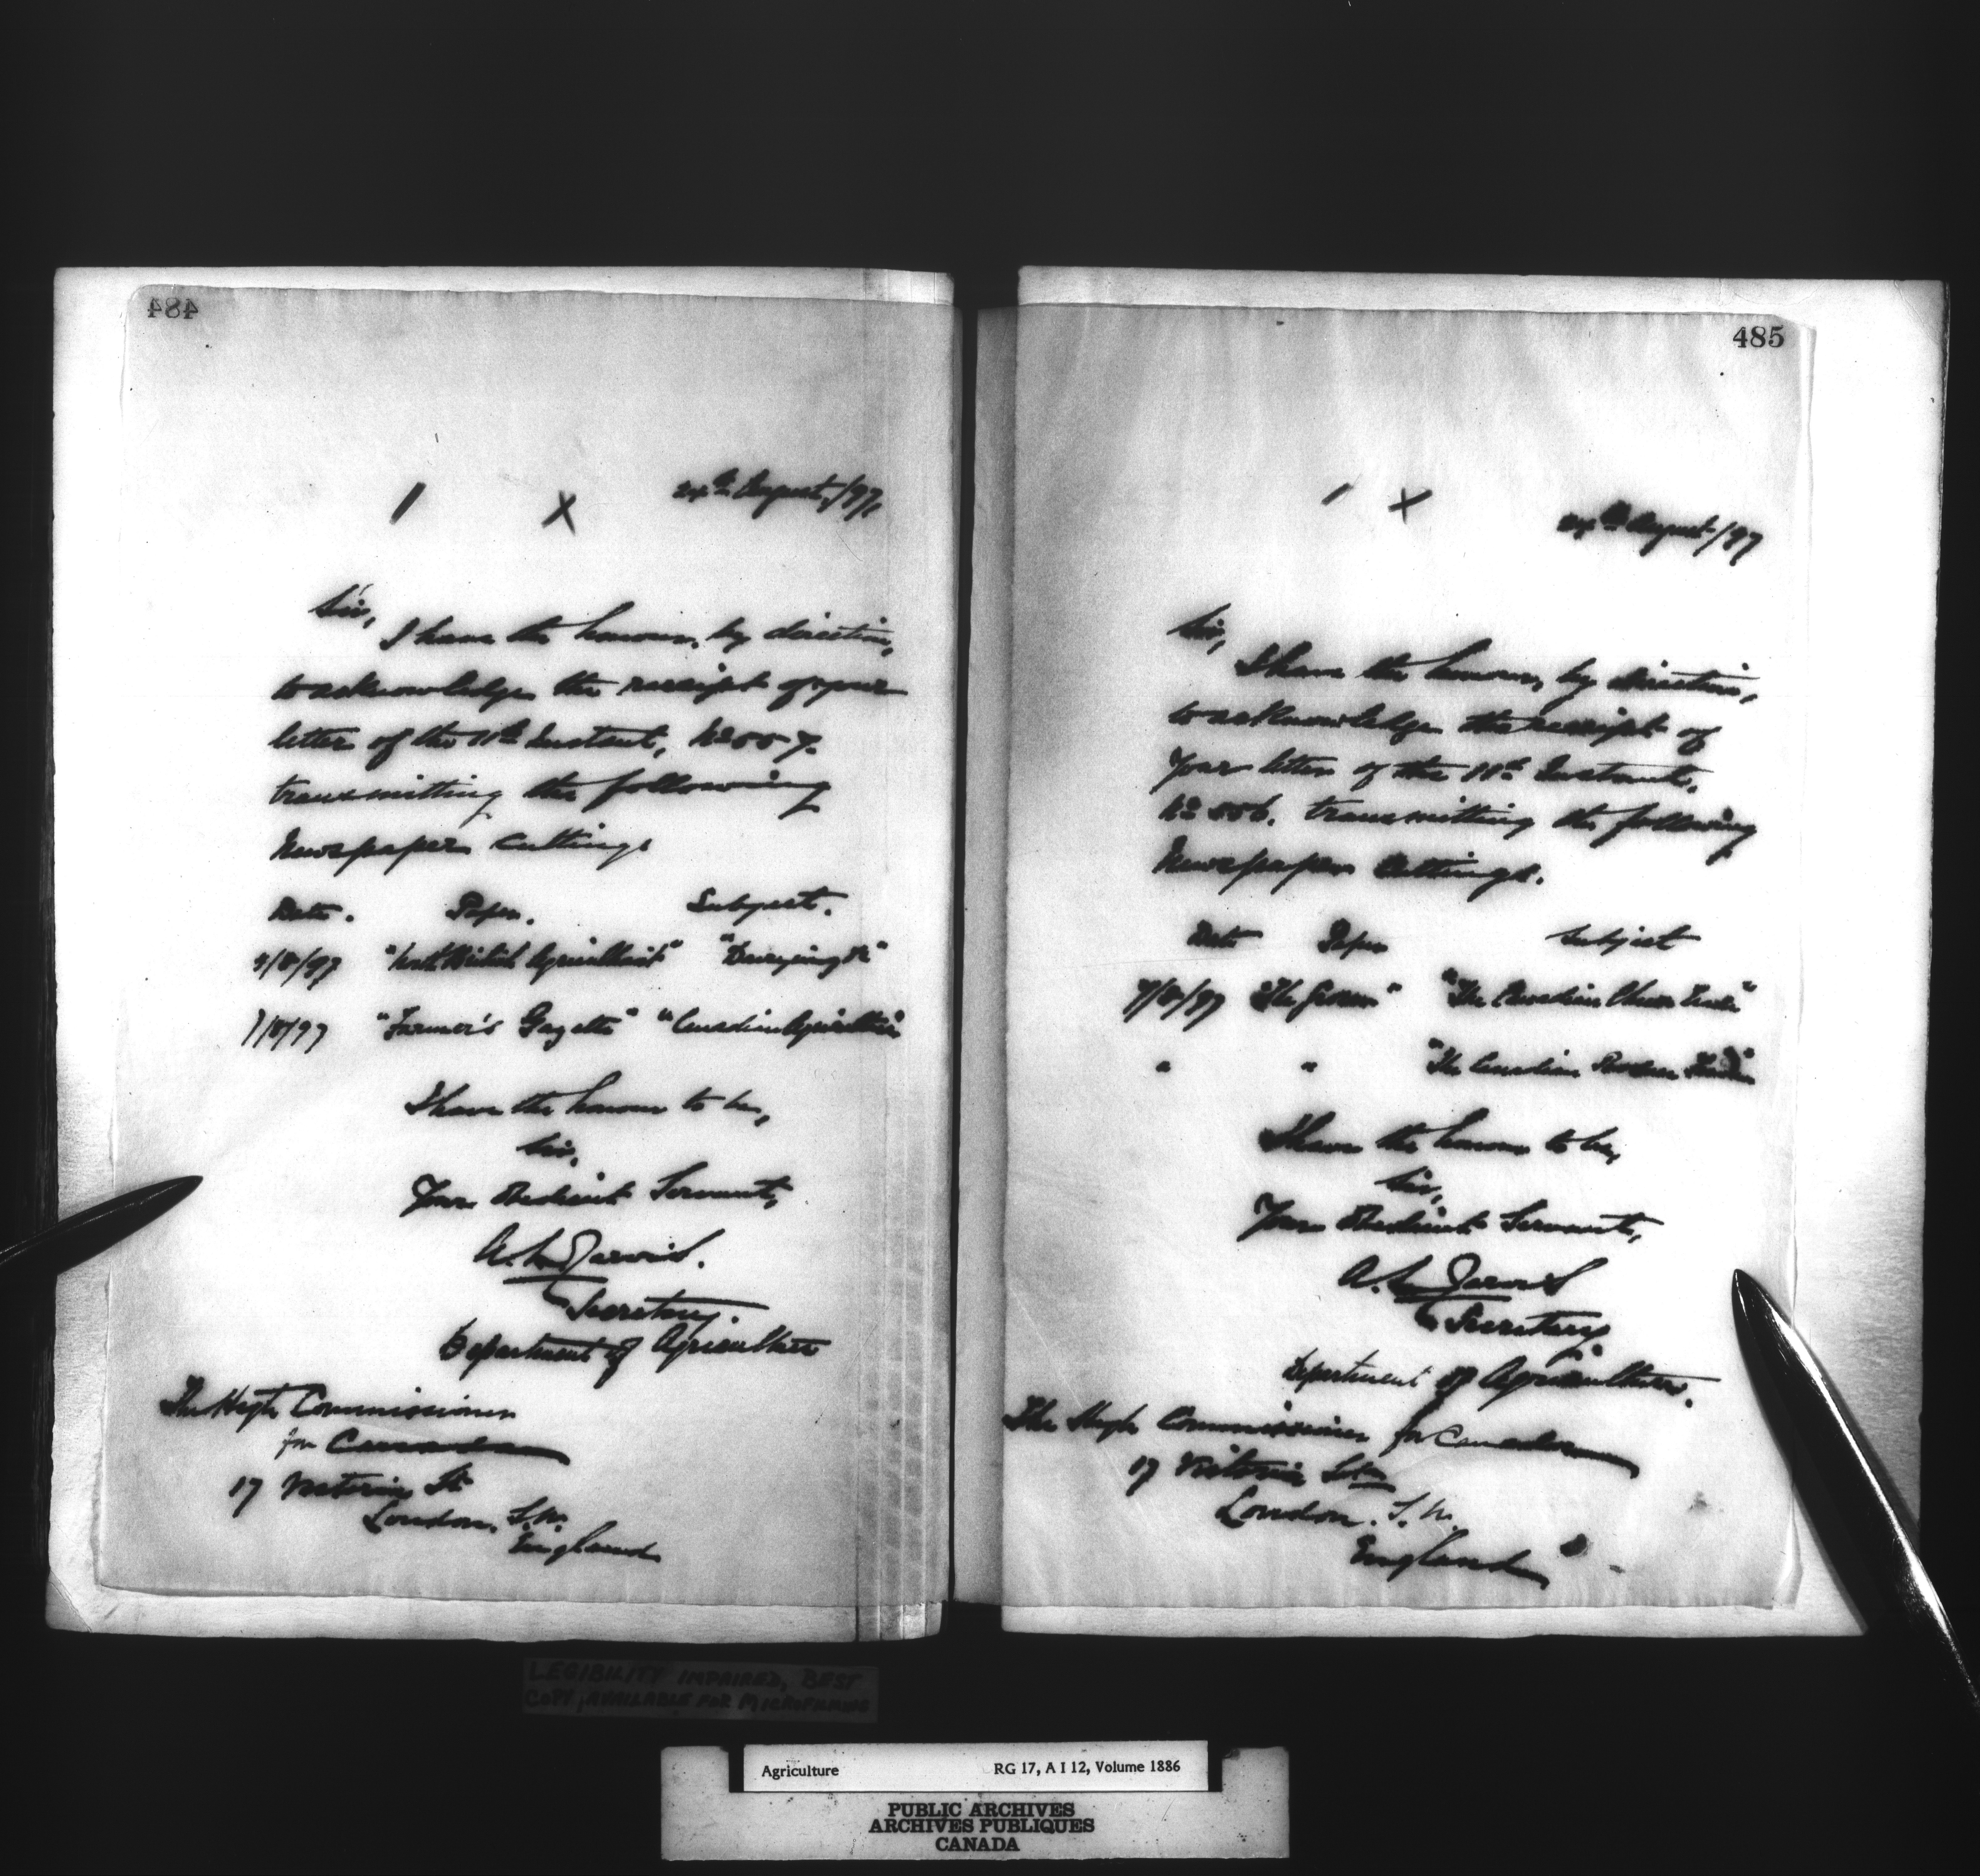 484
1 X 24th August, /97.
Sir,
I have the honour, by direction,
to acknowledge the receipt of your
letter of the 11th Instant, No 557.
transmitting the following
Newspaper cuttings
Date. Paper. Subject.
4/8/97 "North British Agriculturist" "Dairying &c"
7/8/97 "Farmer's Gazette" "Canadian Agriculture"
I have the honour to be,
Sir,
Your Obedient Servant,
A. L. Jarvis.
Secretary.
Department of Agriculture
The High Commissioner
for Canada
17 Victoria St
London, S.W.
England
485
1 X
24th August /97
Sir,
I have the honour, by direction,
to acknowledge the receipt of
your letter of the 11th Instant,
No 556. transmitting the following
Newspaper Cuttings.
Date Paper Subject
7/8/97 "The Grocer" "The Canadian Cheese Trade"
" " "The Canadian Produce
I have the honour to be,
Sir,
Your Obedient Servant,
A. L. Jarvis
Secretary
Department of Agriculture.
The High Commissioner for Canada
17 Victoria St
London. S.W.
England
LEGIBILITY IMPAIRED, BEST
COPY AVAILABLE FOR MICROFILMING
Agriculture RG 17, A I 12, Volume 1886
PUBLIC ARCHIVES
ARCHIVES PUBLIQUES
CANADA